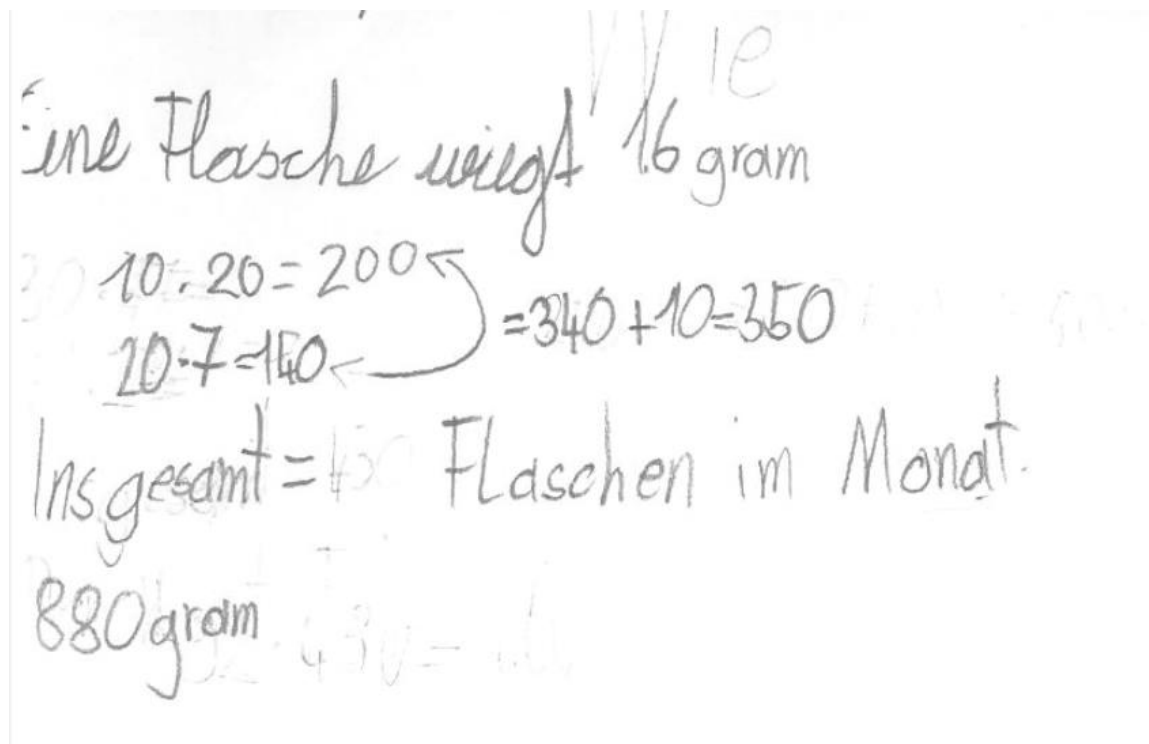 Eine Flasche wiegt 16 gram
10 · 20 = 200
20 · 7 = 140
= 340 + 10 = 350
Insgesamt = Flaschen im Monat.
880 gram